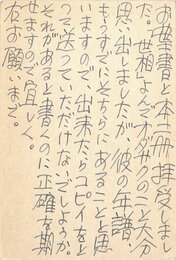 お葉書と本一冊拝受しまし
た。「世相」よんでオダサクのこと大分
思い出しましたが、彼の年譜、
もうすでにそちらにあることと思
いますので、出来たらコピイをと
って送っていただけないでしようか。
それがあると書くのに正確を期
せますので、宜しく。
右お願いまで。